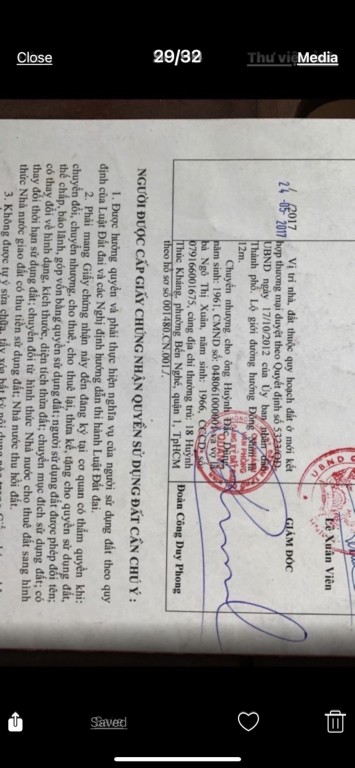 Close
29/32
Media
UBND
Lê Xuân Viên
2017
24 -05- 2017
Vị trí nhà, đất thuộc quy hoạch đất ở mới kết
hợp thương mại duyệt theo Quyết định số
UBND ngày 17/10/2012 của Ủy ban nhân dân
Thành phố. Lộ giới đường hướng
12m.
GIÁM ĐỐC
Chuyển nhượng cho ông Huỳnh và vợ là
năm sinh: 1961, CMND số:
bà Ngô Thị Xuân, năm sinh: 1966, CCCD số
079166001675, cùng địa chỉ thường trú: 18 Huỳnh
Thúc Kháng, phường Bến Nghé, quận 1, TpHCM
theo hồ sơ số 001480.CN.0017.
Đoàn Công Duy Phong
NGƯỜI ĐƯỢC CẤP GIẤY CHỨNG NHẬN QUYỀN SỬ DỤNG ĐẤT CẦN CHÚ Ý :
1. Được hưởng quyền và phải thực hiện nghĩa vụ của người sử dụng đất theo quy
định của Luật Đất đai và các Nghị định hướng dẫn thi hành Luật Đất đai.
2. Phải mang Giấy chứng nhận này đến đăng ký tại cơ quan có thẩm quyền khi:
chuyển đổi, chuyển nhượng, cho thuê, cho thuê lại, thừa kế, tặng cho quyền sử dụng đất,
thế chấp, bảo lãnh, góp vốn bằng quyền sử dụng đất; người sử dụng đất được phép đổi tên;
có thay đổi về hình dạng, kích thước, diện tích thửa đất; chuyển mục đích sử dụng đất; có
thay đổi thời hạn sử dụng đất; chuyển đổi từ hình thức Nhà nước cho thuê đất sang hình
thức Nhà nước giao đất có thu tiền sử dụng đất; Nhà nước thu hồi đất.
3. Không được tự ý sửa chữa, tẩy xóa bất kỳ nội dung nào trong
Saved